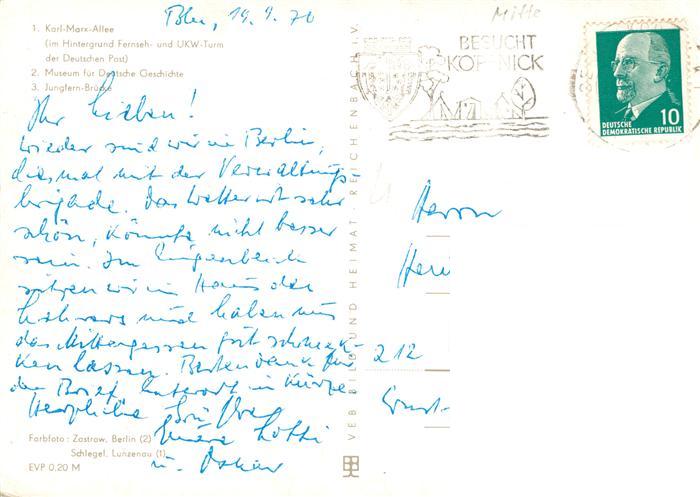 Bln, 19.9.70
1. Karl-Marx-Allee
(im Hintergrund Fernseh- und UKW-Turm
der Deutschen Post)
2. Museum für Deutsche Geschichte
3. Jungfern-Brücke
Ihr Lieben!
Wieder sind wir in Berlin,
diesmal mit der Verwaltungs-
brigade. Das Wetter ist sehr
schön, könnte nicht besser
sein. Im Augenblick
sitzen wir im Haus des
Lehrers und haben uns
das Mittagessen gut schmek-
ken lassen. Besten Dank für
den Brief, Antwort in Kürze
Herzliche Grüße
Eure Lotti
u. Oskar
Farbfoto: Zastrow, Berlin (2)
Schlegel, Lunzenau (1)
EVP 0,20 M
VEB BILD UND HEIMAT REICHENBACH i. V.
Mitte
BESUCHT
KÖPENICK
10
DEUTSCHE
DEMOKRATISCHE REPUBLIK
Herrn
212
Ernst-